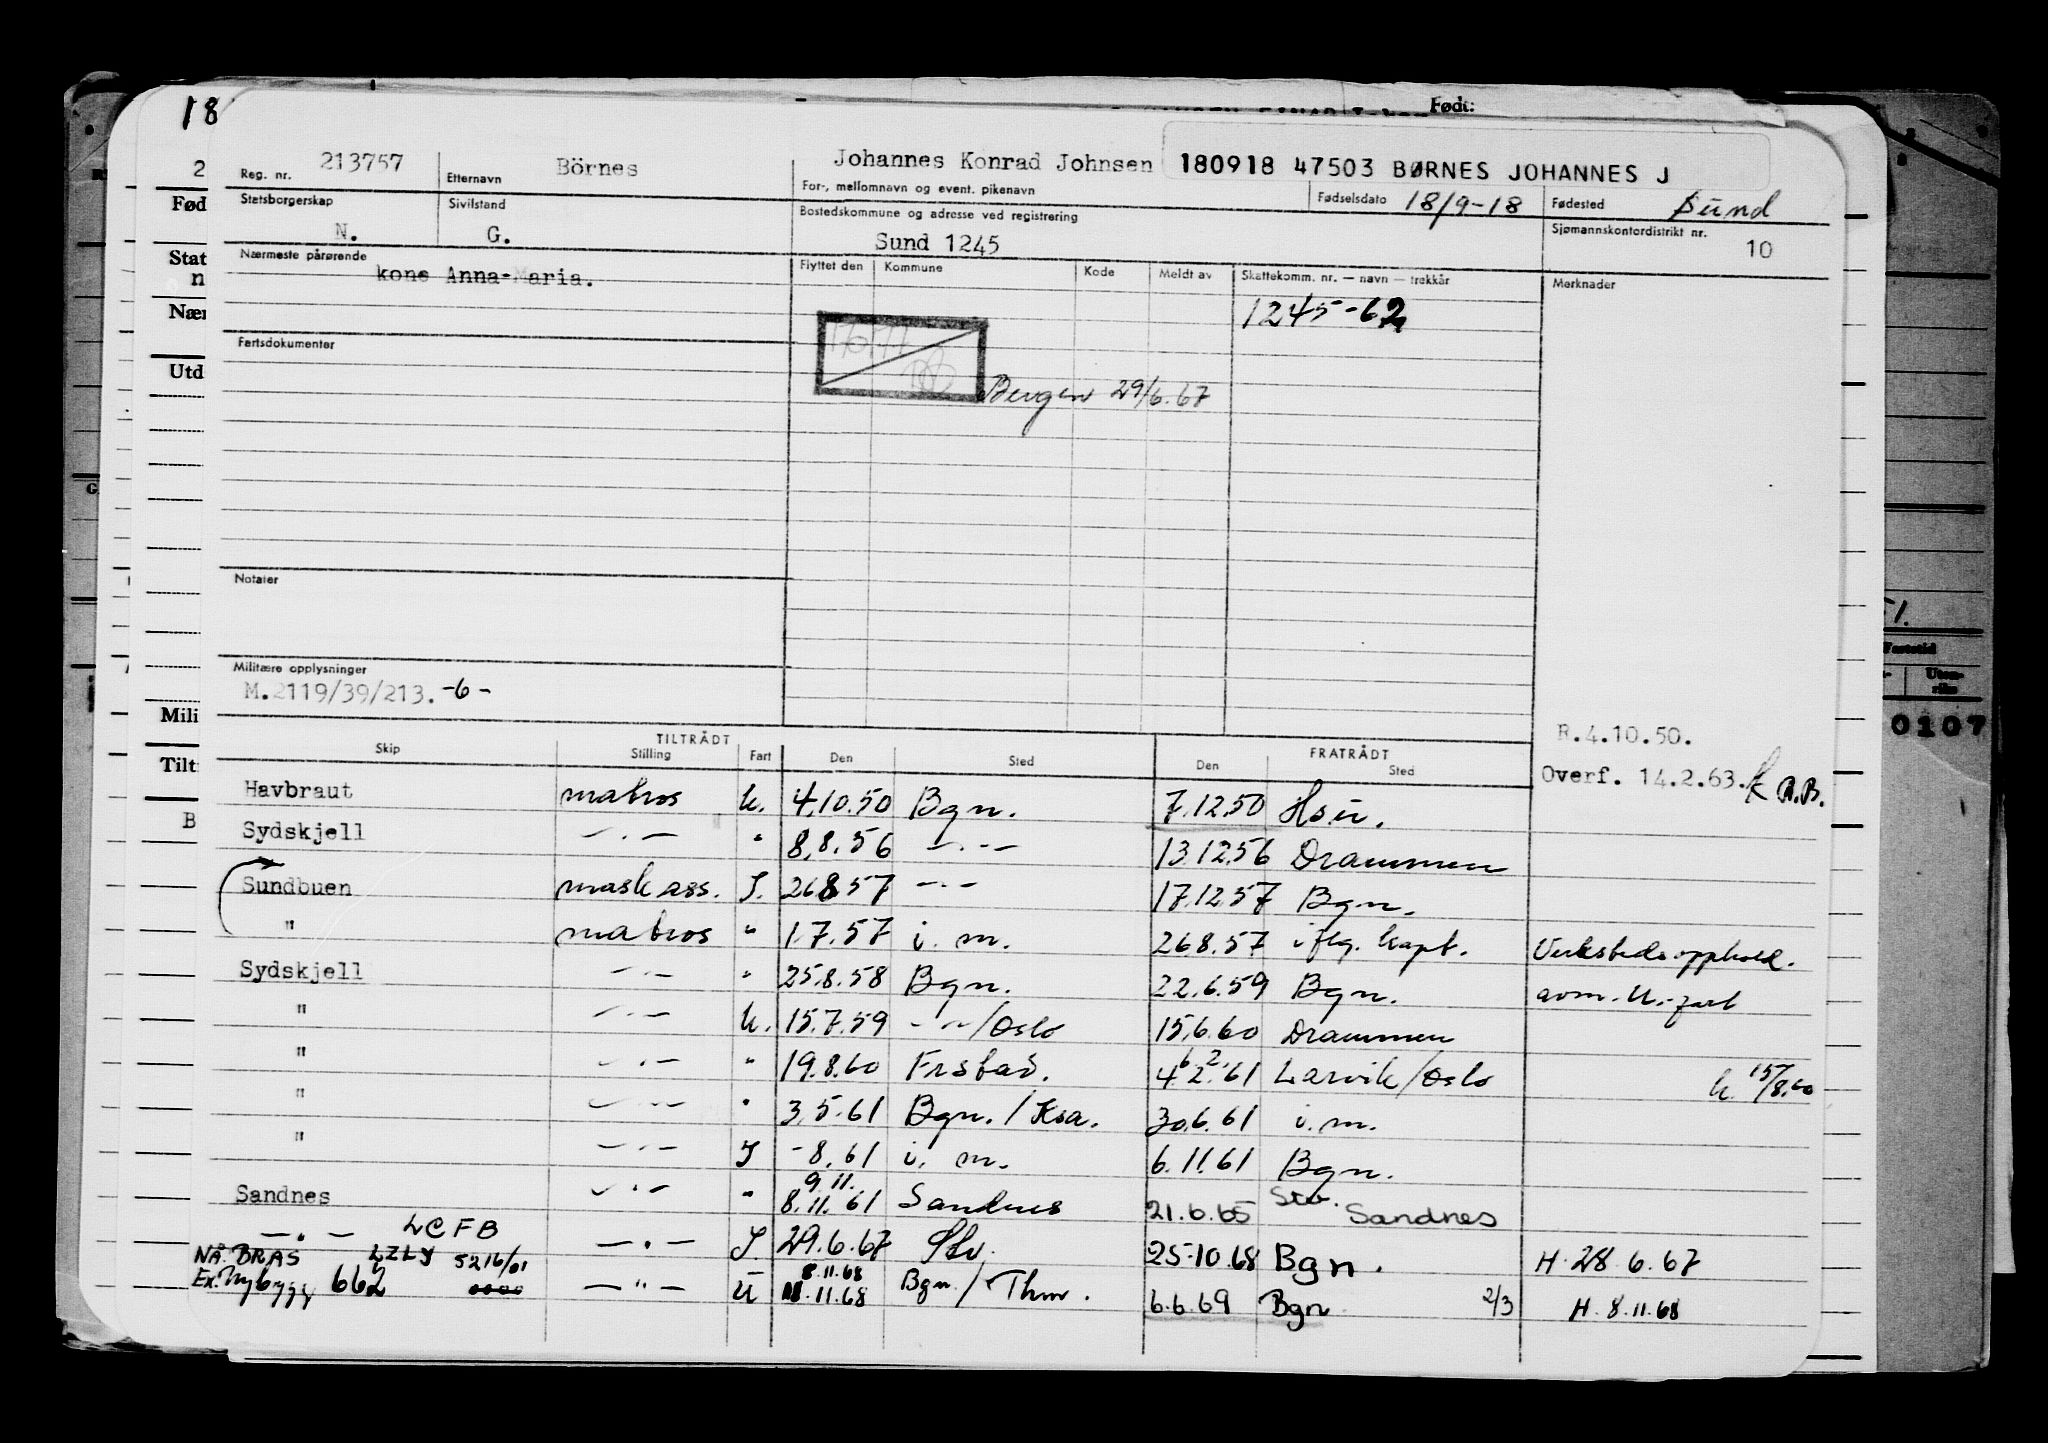 18
Født:
Reg. nr. 213757 Etternavn Börnes Johannes Konrad Johnsen 180918 47503 BØRNES JOHANNES J
For-, mellomnavn og event. pikenavn
Statsborgerskap Sivilstand Bostedskommune og adresse ved registrering Fødselsdato 18/9-18 Fødested Sund
N. G. Sund 1245 Sjømannskontordistrikt nr. 10
Nærmeste pårørende Flyttet den Kommune Kode Meldt av Skattekomm. nr. — navn — trekkår Merknader
kone Anna-Maria.
1245-62
Fartsdokumenter
Bergen 29/6.67
Notater
Militære opplysninger
M.2119/39/213. -6-
R.4.10.50.
TILTRÅDT FRATRÅDT
Skip Stilling Fart Den Sted Den Sted
Overf. 14.2.63. R.B.
Havbraut matros U. 4.10.50 Bgn. 7.12.50 Hsu.
Sydskjell — . — " 8.8.56 — . — 13.12.56 Drammen
Sundbuen mask ass. I. 26.8.57 — . — 17.12.57 Bgn.
" matros " 1.7.57 i. m. 26.8.57 iflg. kapt. Verkstedsopphold.
Sydskjell — . — " 25.8.58 Bgn. 22.6.59 Bgn. avm. U.-fart
" — . — U. 15.7.59 — " —/Oslo 15.6.60 Drammen
" — . — " 19.8.60 Frstad. 4.2.61 6 2. Larvik/Oslo U. 15/8.60
" — . — " 3.5.61 Bgn./Ksa. 30.6.61 i.m.
" — . — I -8.61 i. m. 6.11.61 Bgn.
9.11.
Sandnes — . — " 8.11.61 Sandnes 21.6.65 Stv. Sandnes
— " — LCFB — . — I 29.6.67 Stv. 25-10.68 Bgn. H. 28.6.67
NÅ: BRAS LZLY 5216/01
8.11.68
Ex. Nybygg 662 — " — U 11.68 Bgn./Thm. 6.6.69 Bgn 2/3 H. 8.11.68
Fød
Stat
n
Nær
Utd
Mili
Tilt
B
0107